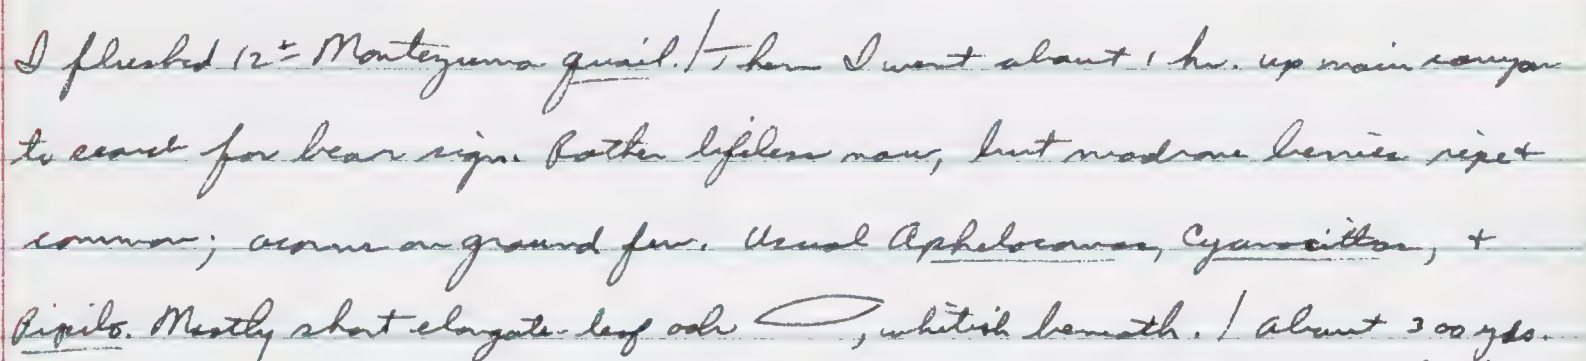 I flushed 12± Montezuma quail. / Then I went about 1 hr. up main canyon
to search for bear sign. Rather lifeless now, but madrone berries ripe +
common; acorns on ground few. Usual Aphelocomas, Cyanocittas, +
Pipilo. Mostly short elongate-leaf oak , whitish beneath. / About 300 yds.